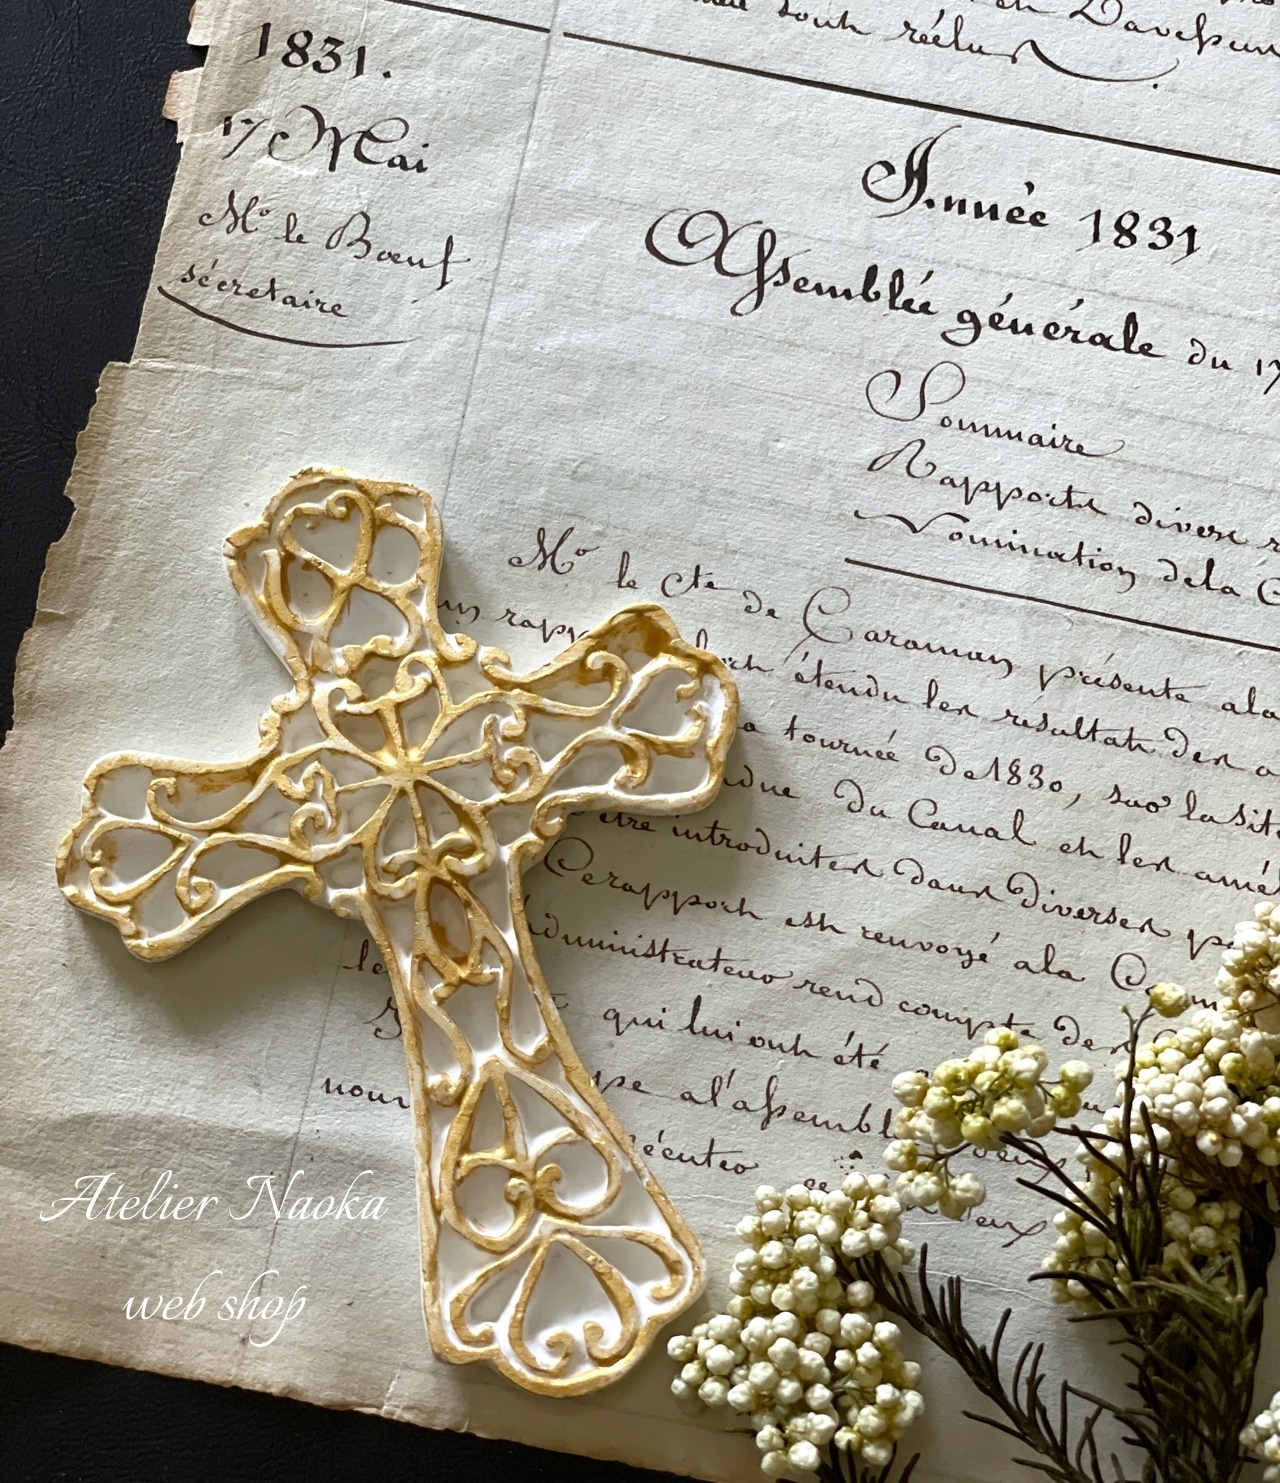 sont réélus
1831.
17 Mai
Mr. le Bœuf
sécretaire
Année 1831
Assemblée générale du 17
Sommaire
Rapports divers
Nomination dela
Mr. le Cte de Caraman présente ala
un rapp étendu les résultats des
tournée de 1830, sur la sit
du Canal et les amé
être introduites dans diverses
Ce rapport est renvoyé ala
administrateur rend compte des
le
qui lui ont été
nour
al'assembl
ce
Atelier Naoka
web shop